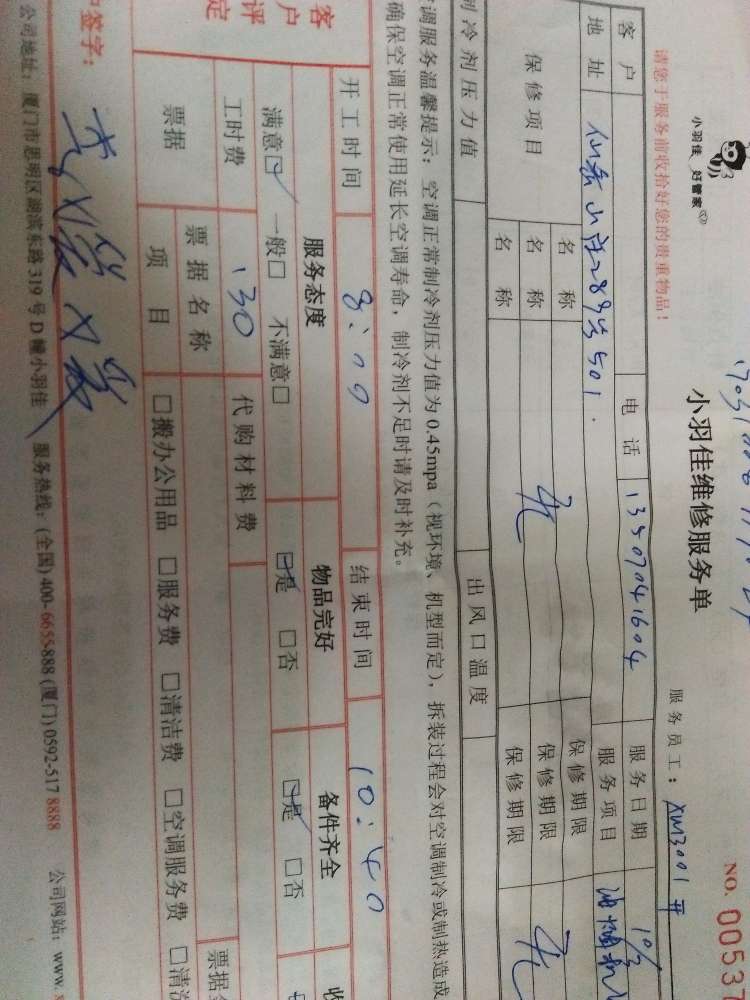 小羽佳 好管家
小羽佳维修服务单
NO. 00537
请您于服务前收拾好您的贵重物品！
服务员工：XM3001
客户 电话 13507041604 服务日期 10/3
地址 仙岳山庄289号501. 服务项目 油烟机
保修项目 名称 保修期限
名称 无 保修期限 无
名称 保修期限
制冷剂压力值 出风口温度
空调服务温馨提示：空调正常制冷剂压力值为0.45mpa（视环境、机型而定），拆装过程会对空调制冷或制热造成
确保空调正常使用延长空调寿命，制冷剂不足时请及时补充。
开工时间 8:00 结束时间 10:40
客户评定 服务态度 物品完好 备件齐全
满意☑ 一般□ 不满意□ ☑是 □否 ☑是 □否
工时费 130 代购材料费
票据 票据名称 票据
项目 □搬办公用品 □服务费 □清洁费 □空调服务费 □清洗
签字：
公司地址：厦门市思明区湖滨东路319号D幢小羽佳 服务热线：(全国)400-6655-888 (厦门)0592-517 8888 公司网站：www.